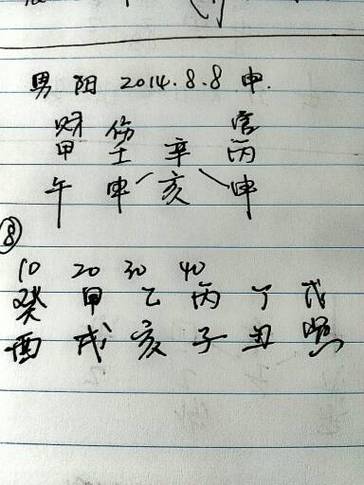 男 阳 2014.8.8 申.
财 伤 官
甲 壬 辛 丙
午 申 亥 申
⑧
10 20 30 40
癸 甲 乙 丙 丁 戊
酉 戌 亥 子 丑 寅